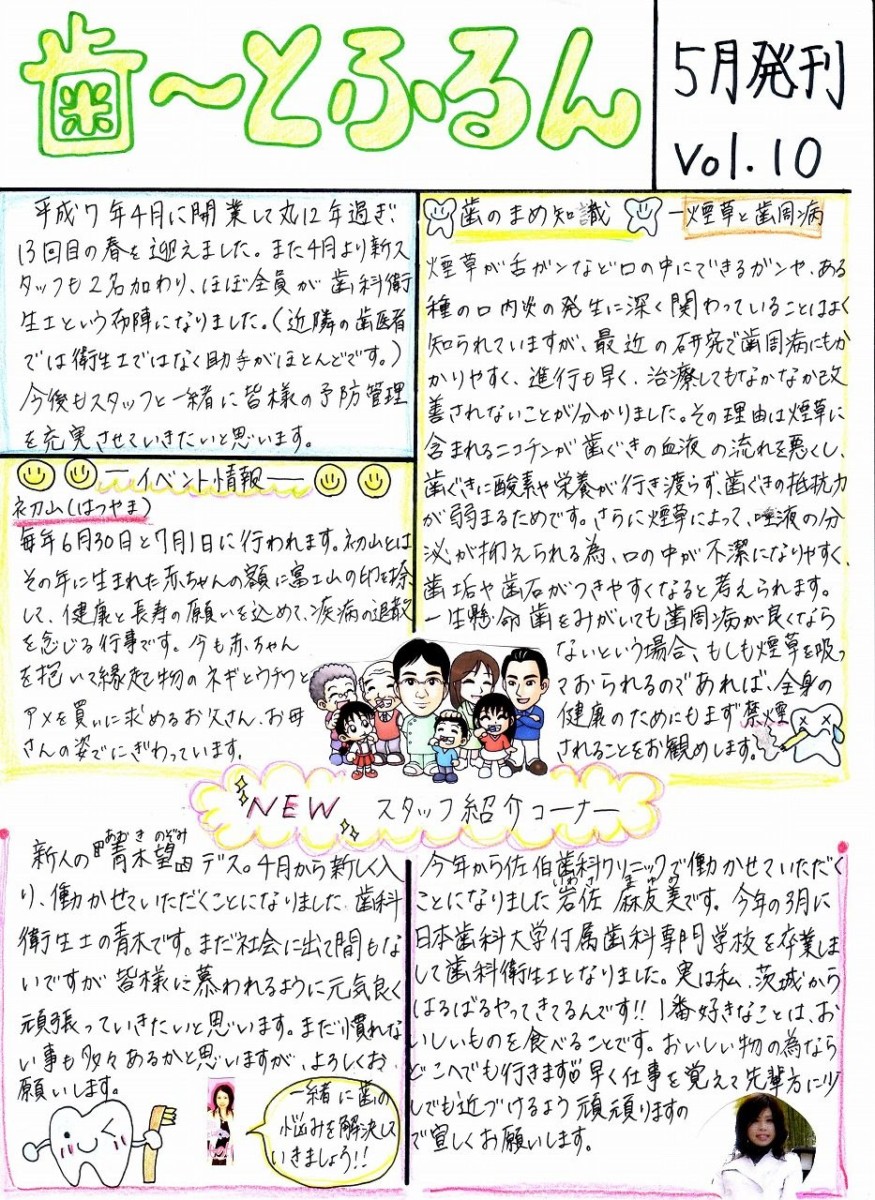 歯〜とふるん
5月発刊
Vol.10
平成7年4月に開業して丸12年過ぎ
13回目の春を迎えました。また4月より新ス
タッフも2名加わり、ほぼ全員が歯科衛
生士という布陣になりました。(近隣の歯医者
では衛生士ではなく助手がほとんどです。)
今後もスタッフと一緒に皆様の予防管理
を充実させていきたいと思います。
ーイベント情報ー
初山(はつやま)
毎年6月30日と7月1日に行われます。初山とは
その年に生まれた赤ちゃんの額に富士山の印を捺
して、健康と長寿の願いを込めて、疾病の退散
を念じる行事です。今も赤ちゃん
を抱いて縁起物のネギとウチワと
アメを買いに求めるお父さん、お母
さんの姿でにぎわっています。
歯のまめ知識
ー煙草と歯周病
煙草が舌ガンなど口の中にできるガンや、ある
種の口内炎の発生に深く関わっていることはよく
知られていますが、最近の研究で歯周病にもか
かりやすく、進行も早く、治療してもなかなか改
善されないことが分かりました。その理由は煙草に
含まれるニコチンが歯ぐきの血液の流れを悪くし、
歯ぐきに酸素や栄養が行き渡らず、歯ぐきの抵抗力
が弱まるためです。さらに煙草によって、唾液の分
泌が抑えられる為、口の中が不潔になりやすく、
歯垢や歯石がつきやすくなると考えられます。
一生懸命歯をみがいても歯周病が良くなら
ないという場合、もしも煙草を吸っ
ておられるのであれば、全身の
健康のためにもまず禁煙
されることをお勧めします。
NEW スタッフ紹介コーナー
あおき のぞみ
新人の『青木望』デス。4月から新しく入
り、働かせていただくことになりました 歯科
衛生士の青木です。まだ社会に出て間もな
いですが皆様に慕われるように元気良く
頑張っていきたいと思います。まだ慣れな
い事も多々あるかと思いますが、よろしくお
願いします。
一緒に歯の
悩みを解決して
いきましょう!!
今年から佐伯歯科クリニックで働かせていただく
いわさ まゆみ
ことになりました岩佐 麻友美です。今年の3月に
日本歯科大学付属歯科専門学校を卒業しま
して歯科衛生士となりました。実は私、茨城から
はるばるやってきてるんです!!1番好きなことは、お
いしいものを食べることです。おいしい物の為なら
どこへでも行きます 早く仕事を覚えて先輩方に少
しでも近づけるよう頑頑りますの
で宜しくお願いします。